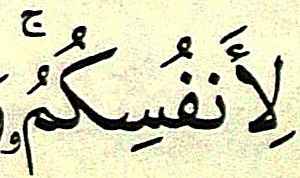 لِأَنفُسِكُمُ ۚ